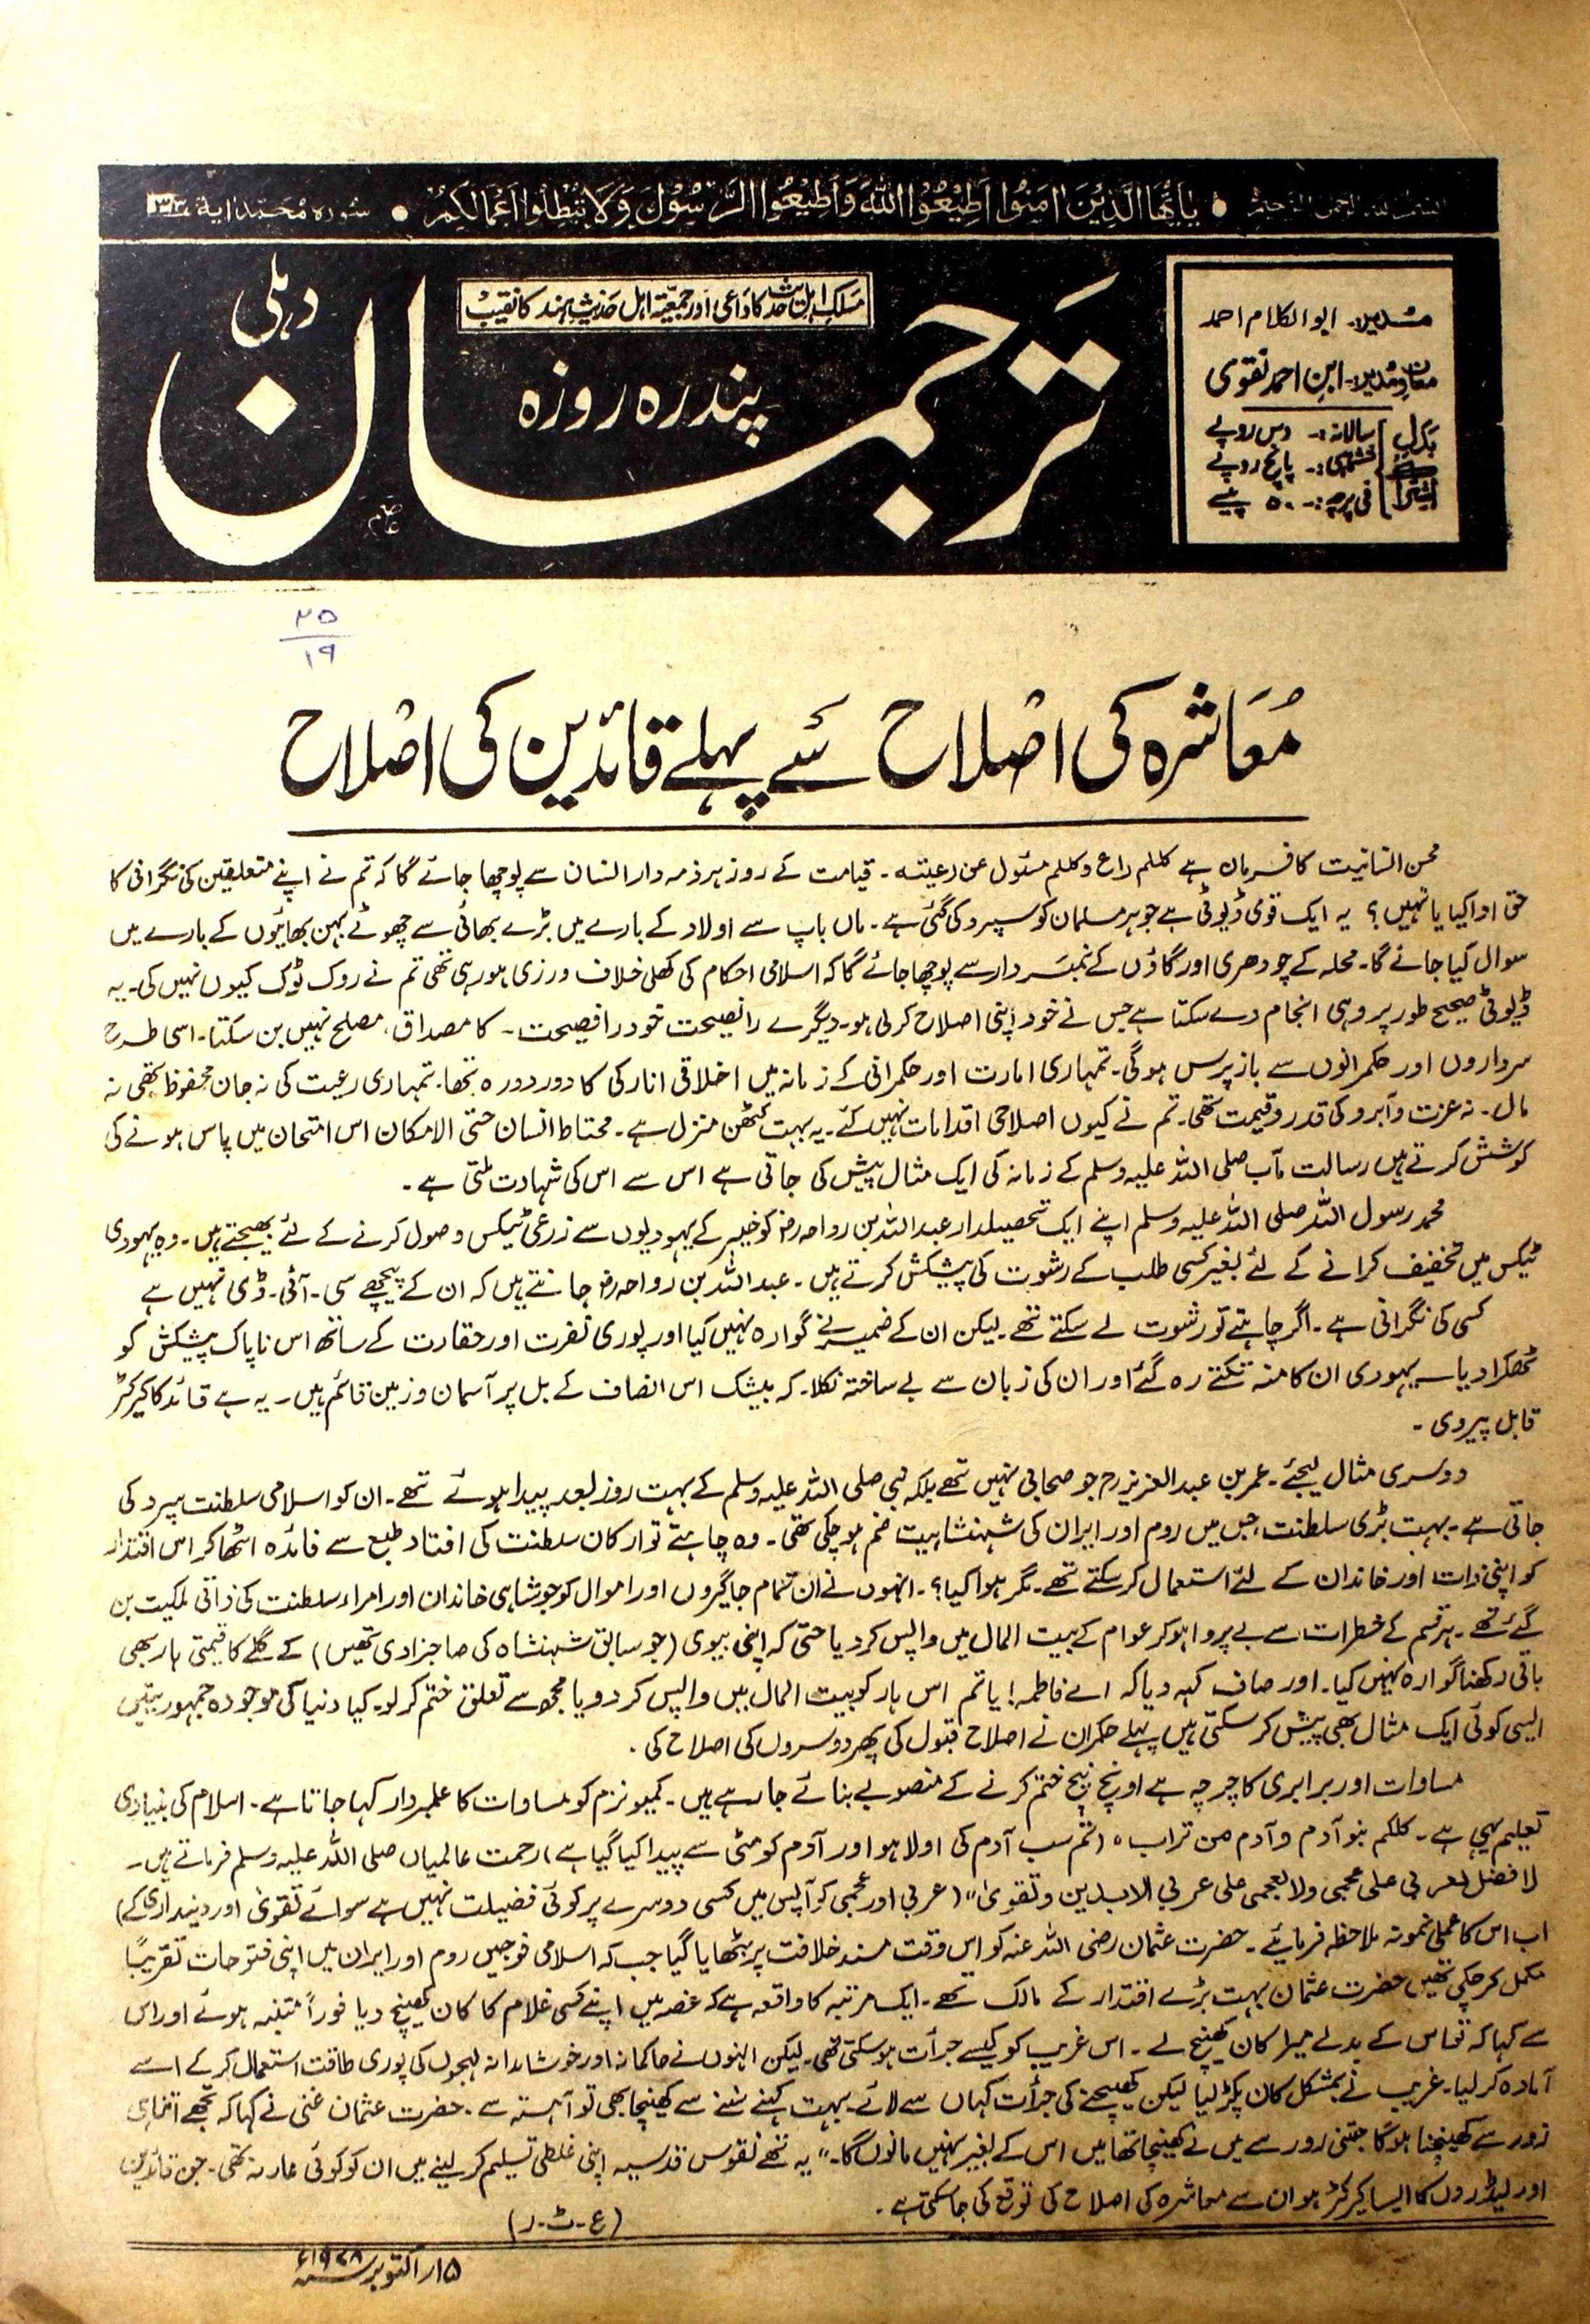 بسم اللہ الرحمن الرحیم • یٰاَیُّهَا الَّذِیْنَ اٰمَنُوا اَطِیْعُوا اللّٰهَ وَاَطِیْعُوا الرَّسُوْلَ وَلَا تُبْطِلُوا اَعْمَالَكُمْ • سورہ محمد اٰیة ۳۳
مدیر۔ ابوالکلام احمد
معاون مدیر۔ ابن احمد نقوی
بدل اشتراک
سالانہ:۔ دس روپے
ششماہی:۔ پانچ روپے
فی پرچہ:۔ ۵۰ پیسے
مسلک اہل حدیث کا داعی اور جمعیۃ اہل حدیث ہند کا نقیب
پندرہ روزہ
ترجمان
دہلی
۲۵
۱۹
مُعَاشرہ کی اصْلاح سے پہلے قائدین کی اصْلاح
محسن انسانیت کا فرمان ہے کلکم راع وکلکم مسئول عن رعیتہ۔ قیامت کے روز ہر ذمہ دار انسان سے پوچھا جائے گا کہ تم نے اپنے متعلقین کی نگرانی کا
حق ادا کیا یا نہیں؟ یہ ایک قومی ڈیوٹی ہے جو ہر مسلمان کو سپرد کی گئی ہے۔ ماں باپ سے اولاد کے بارے میں بڑے بھائی سے چھوٹے بہن بھائیوں کے بارے میں
سوال کیا جائے گا۔ محلہ کے چودھری اور گاؤں کے نمبردار سے پوچھا جائے گا کہ اسلامی احکام کی کھلی خلاف ورزی ہو رہی تھی تم نے روک ٹوک کیوں نہیں کی۔ یہ
ڈیوٹی صحیح طور پر وہی انجام دے سکتا ہے جس نے خود اپنی اصلاح کر لی ہو۔ دیگرے را نصیحت خود را فصیحت۔ کا مصداق، مصلح نہیں بن سکتا۔ اسی طرح
سرداروں اور حکمرانوں سے باز پرس ہوگی۔ تمہاری امارت اور حکمرانی کے زمانہ میں اخلاقی انارکی کا دور دورہ تھا۔ تمہاری رعیت کی نہ جان محفوظ تھی نہ
مال۔ نہ عزت و آبرو کی قدر و قیمت تھی۔ تم نے کیوں اصلاحی اقدامات نہیں کئے۔ یہ بہت کٹھن منزل ہے۔ محتاط انسان حتی الامکان اس امتحان میں پاس ہونے کی
کوشش کرتے ہیں رسالت مآب صلی اللہ علیہ وسلم کے زمانہ کی ایک مثال پیش کی جاتی ہے اس سے اس کی شہادت ملتی ہے۔
محمد رسول اللہ صلی اللہ علیہ وسلم اپنے ایک تحصیلدار عبداللہ بن رواحہ رضؓ کو خیبر کے یہودیوں سے زرعی ٹیکس وصول کرنے کے لئے بھیجتے ہیں۔ وہ یہودی
ٹیکس میں تخفیف کرانے کے لئے بغیر کسی طلب کے رشوت کی پیشکش کرتے ہیں۔ عبداللہ بن رواحہ رضؓ جانتے ہیں کہ ان کے پیچھے سی۔ آئی۔ ڈی نہیں ہے
کسی کی نگرانی ہے۔ اگر چاہتے تو رشوت لے سکتے تھے۔ لیکن ان کے ضمیر نے گوارہ نہیں کیا اور پوری نفرت اور حقارت کے ساتھ اس ناپاک پیشکش کو
ٹھکرا دیا۔ یہودی ان کا منہ تکتے رہ گئے اور ان کی زبان سے بے ساختہ نکلا۔ کہ بیشک اس انصاف کے بل پر آسمان و زمین قائم ہیں۔ یہ ہے قائد کا کیرکٹر
قابل پیروی۔
دوسری مثال لیجئے۔ عمر بن عبدالعزیز رح جو صحابی نہیں تھے بلکہ نبی صلی اللہ علیہ وسلم کے بہت روز بعد پیدا ہوئے تھے۔ ان کو اسلامی سلطنت سپرد کی
جاتی ہے۔ بہت بڑی سلطنت، جس میں روم اور ایران کی شہنشاہیت ضم ہو چکی تھی۔ وہ چاہتے تو ارکان سلطنت کی افتاد طبع سے فائدہ اٹھا کر اس اقتدار
کو اپنی ذات اور خاندان کے لئے استعمال کر سکتے تھے۔ مگر ہوا کیا؟۔ انہوں نے ان تمام جاگیروں اور اموال کو جو شاہی خاندان اور امراء سلطنت کی ذاتی ملکیت بن
گئے تھے۔ ہر قسم کے خطرات سے بے پروا ہو کر عوام کے بیت المال میں واپس کر دیا حتی کہ اپنی بیوی (جو سابق شہنشاہ کی صاحبزادی تھیں) کے گلے کا قیمتی ہار بھی
باقی رکھنا گوارہ نہیں کیا۔ اور صاف کہہ دیا کہ اے فاطمہ! یا تم اس ہار کو بیت المال میں واپس کر دو یا مجھ سے تعلق ختم کر لو۔ کیا دنیا کی موجودہ جمہوریتیں
ایسی کوئی ایک مثال بھی پیش کر سکتی ہیں پہلے حکمران نے اصلاح قبول کی پھر دوسروں کی اصلاح کی۔
مساوات اور برابری کا چرچہ ہے اونچ نیچ ختم کرنے کے منصوبے بنائے جا رہے ہیں۔ کمیونزم کو مساوات کا علمبردار کہا جاتا ہے۔ اسلام کی بنیادی
تعلیم یہی ہے۔ کلکم بنو آدم و آدم من تراب ہ (تم سب آدم کی اولاد ہو اور آدم کو مٹی سے پیدا کیا گیا ہے) رحمت عالمیاں صلی اللہ علیہ وسلم فرماتے ہیں۔
لا فضل لعربی علی عجمی ولا لعجمی علی عربی الا بدین و تقویٰ" (عربی اور عجمی کو آپس میں کسی دوسرے پر کوئی فضیلت نہیں ہے سوائے تقویٰ اور دینداری کے)
اب اس کا عملی نمونہ ملاحظہ فرمائیے۔ حضرت عثمان رضی اللہ عنہ کو اس وقت مسند خلافت پر بٹھایا گیا جب کہ اسلامی فوجیں روم اور ایران میں اپنی فتوحات تقریباً
مکمل کر چکی تھیں حضرت عثمان بہت بڑے اقتدار کے مالک تھے۔ ایک مرتبہ کا واقعہ ہے کہ غصہ میں اپنے کسی غلام کا کان کھینچ دیا فوراً متنبہ ہوئے اور اس
سے کہا کہ تو اس کے بدلے میرا کان کھینچ لے۔ اس غریب کو کیسے جرأت ہو سکتی تھی۔ لیکن انہوں نے حاکمانہ اور خوشامدانہ لہجوں کی پوری طاقت استعمال کر کے اسے
آمادہ کر لیا۔ غریب نے بمشکل کان پکڑ لیا لیکن کھینچنے کی جرأت کہاں سے لائے۔ بہت کہنے سننے سے کھینچا بھی تو آہستہ سے۔ حضرت عثمان غنی نے کہا کہ تجھے اتنا ہی
زور سے کھینچنا ہوگا جتنی زور سے میں نے کھینچا تھا میں اس کے بغیر نہیں مانوں گا۔" یہ تھے نفوس قدسیہ اپنی غلطی تسلیم کر لینے میں ان کو کوئی عار نہ تھی۔ جن قائدین
اور لیڈروں کا ایسا کیرکٹر ہو ان سے معاشرہ کی اصلاح کی توقع کی جا سکتی ہے۔
(ع۔ ٹ۔ ر)
۱۵ار اکتوبر سنہ ۱۹۷۸ء